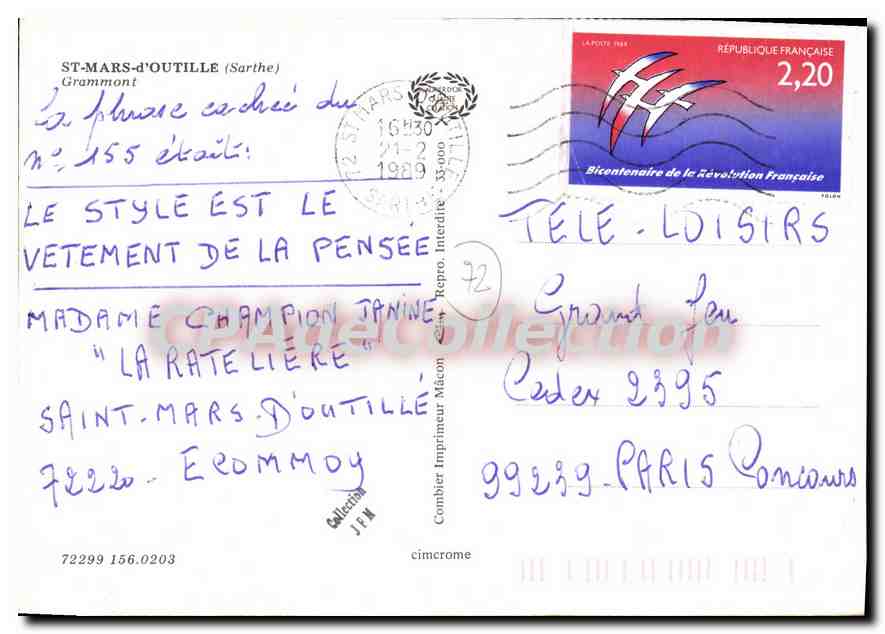 ST-MARS-d'OUTILLÉ (Sarthe)
Grammont
La phrase cachée du
n° 155 était:
LE STYLE EST LE
VETEMENT DE LA PENSÉE
MADAME CHAMPION JANINE
"LA RATELIÈRE"
SAINT-MARS-D'OUTILLÉ
72220 - ECOMMOY
Collection
JFM
72299 156.0203
cimcrome
Combier Imprimeur Mâcon
Repro. Interdite - 35-000
72 ST MARS D'OUTILLE
16H30
21-2
1989
SARTHE
LA POSTE 1989
RÉPUBLIQUE FRANÇAISE
2,20
Bicentenaire de la Révolution Française
FOLON
72
TÉLÉ-LOISIRS
Grand Jeu
Cedex 2395
99239-PARIS Concours
CPADeCollection